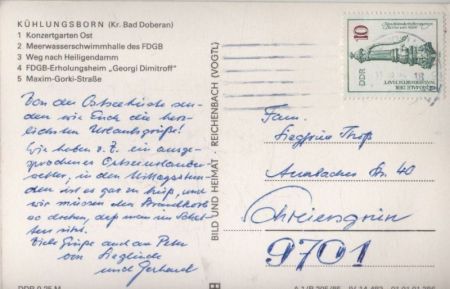 KÜHLUNGSBORN (Kr. Bad Doberan)
1 Konzertgarten Ost
2 Meerwasserschwimmhalle des FDGB
3 Weg nach Heiligendamm
4 FDGB-Erholungsheim „Georgi Dimitroff"
5 Maxim-Gorki-Straße
Von der Ostseeküste sen-
den wir Euch die herz-
lichsten Urlaubsgrüße!
Wir haben z. Z. ein ausge-
sprochenes Ostseeurlauber-
wetter, in den Mittagsstun-
den ist es gar zu heiß, und
wir müssen den Strandkorb
so drehen, daß man im Schat-
ten sitzt.
Viele Grüße auch an Peter
von Sieglinde
und Gerhard
BILD UND HEIMAT · REICHENBACH (VOGTL)
10
DDR
Fam.
Siegfried
Auerbacher Str. 40
Schreiersgrün
9701
DDR 0,25 M